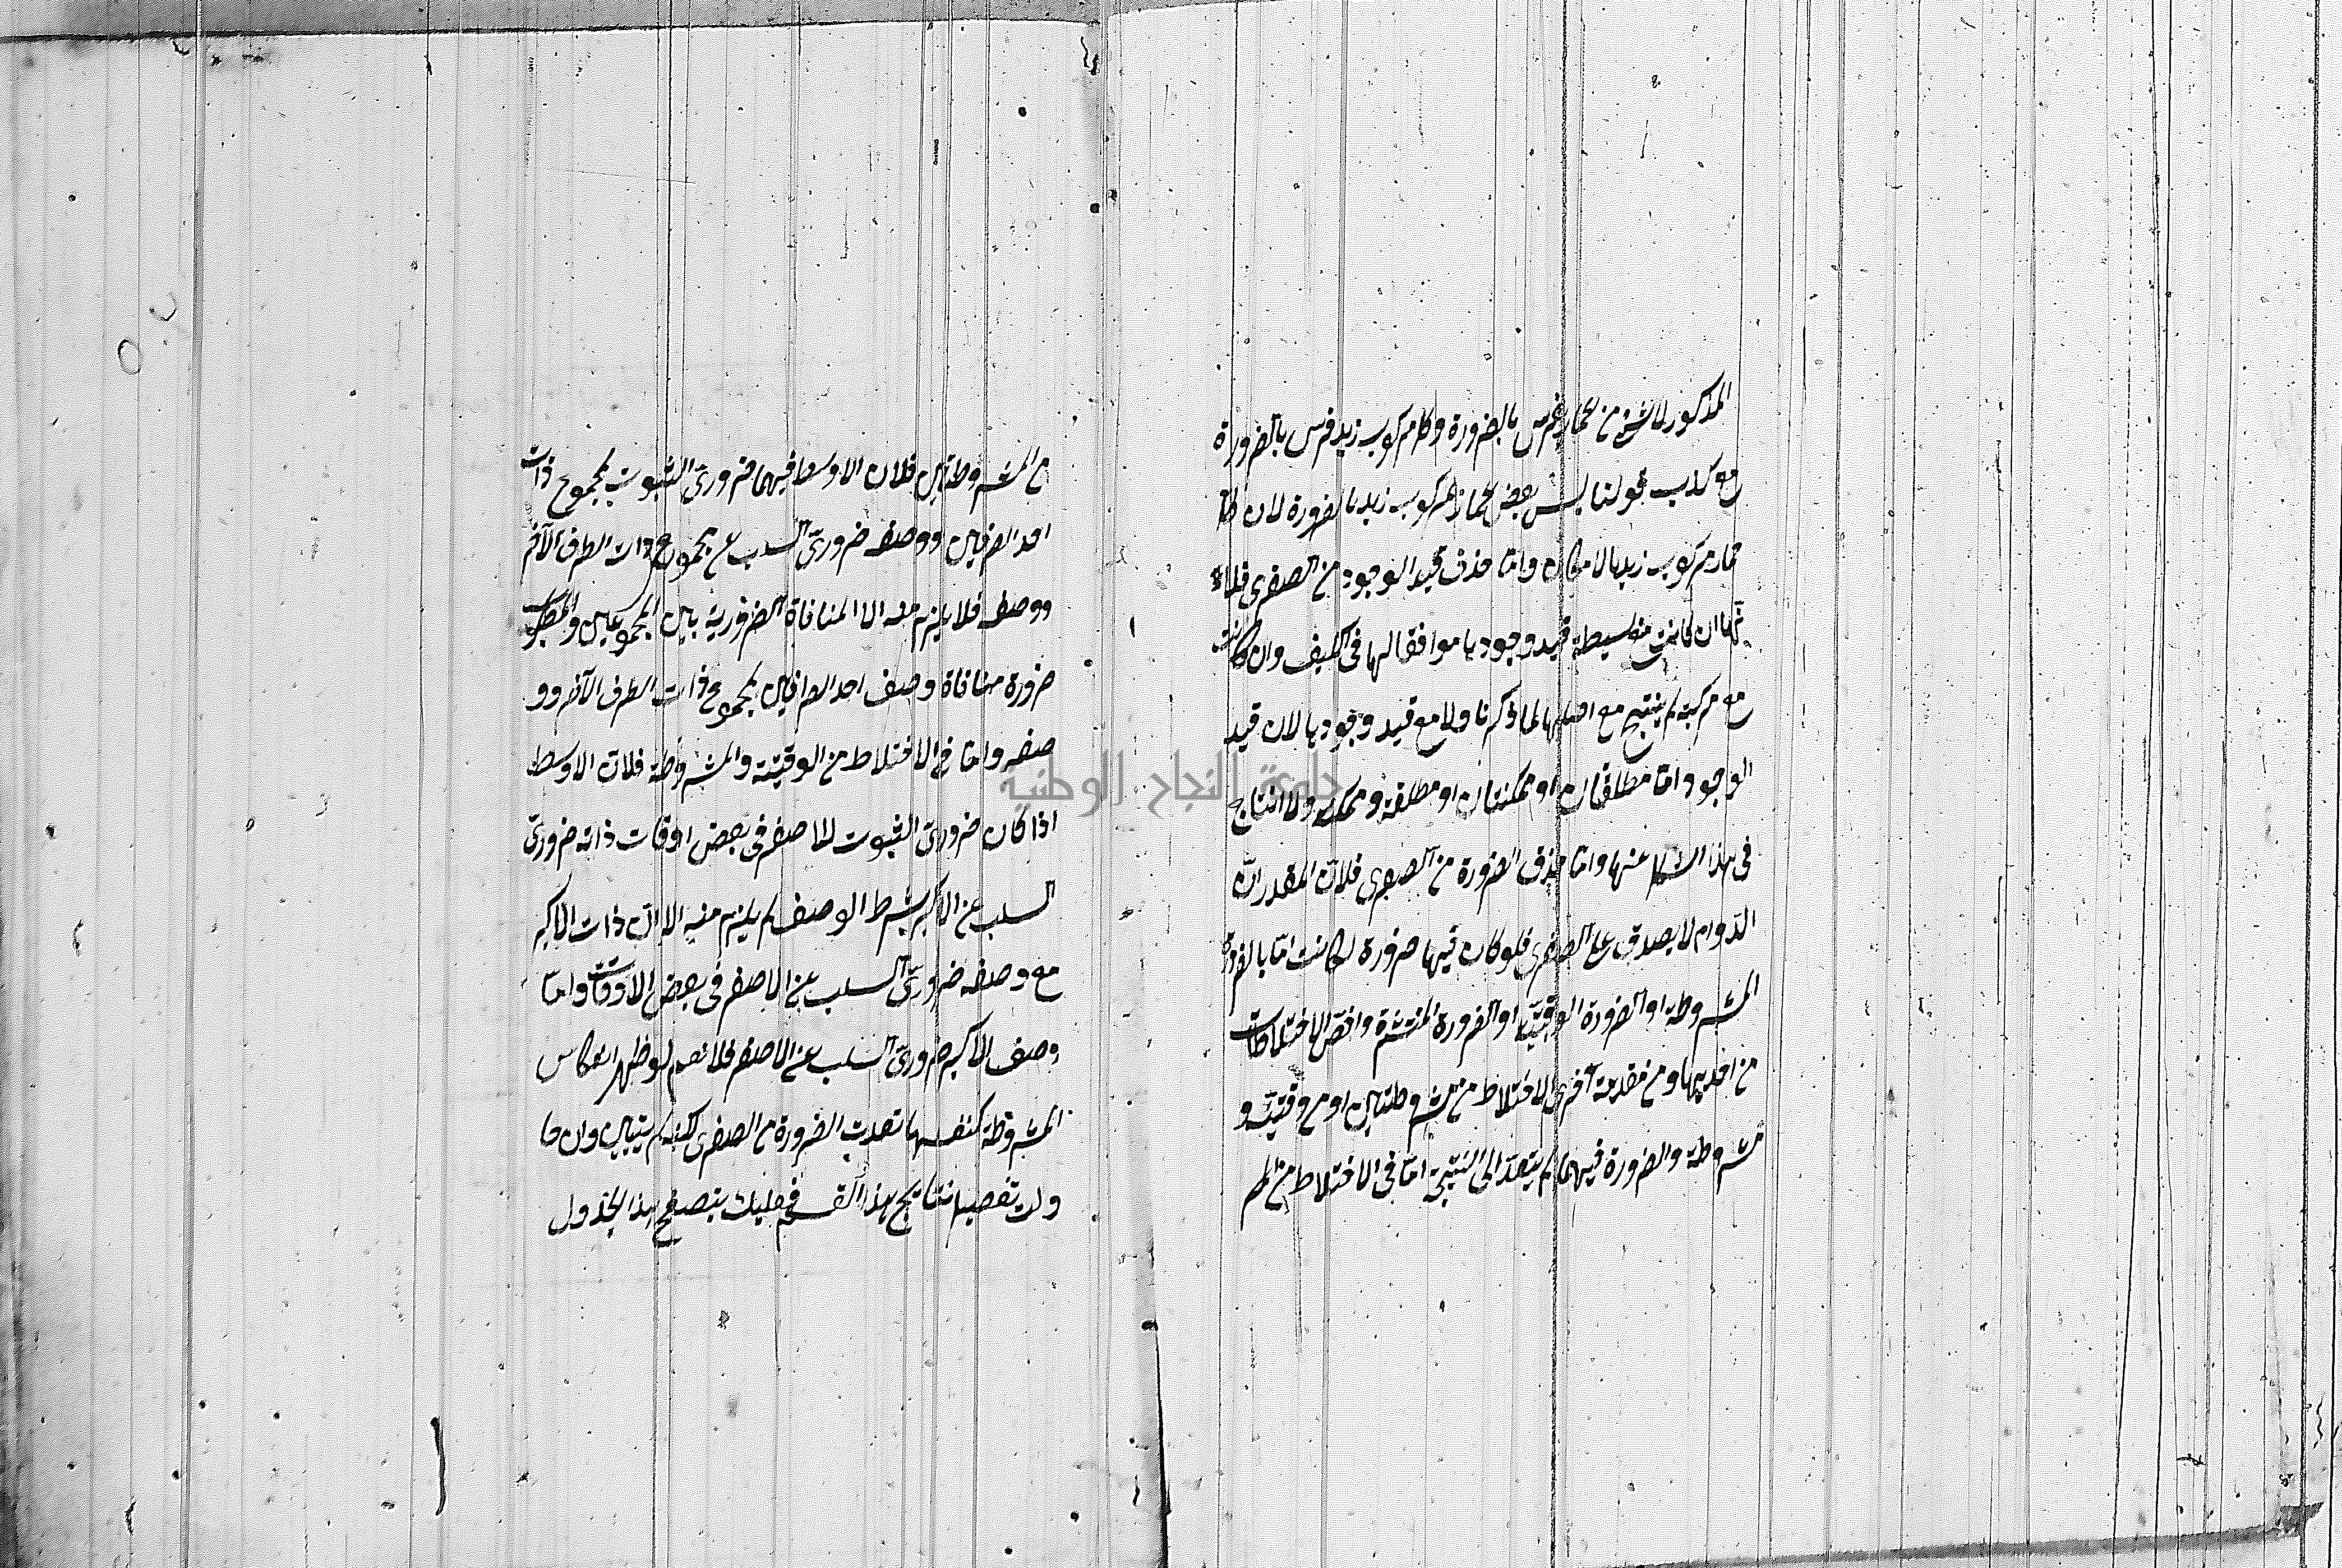 المذكور لا شئ من الحمار بفرس بالضرورة وكل مركوب زيد فرس بالضرورة
مع كذب قولنا ليس بعض الحمار مركوب زيد بالضرورة لان كل
حمار مركوب زيد بالامكان واما حذف قيد الوجود من الصغرى فلما
انها ان كانت مع بسيطة قيد وجودها موافقا لها فى الكيف وان كانت
مع مركبة لم ينتج مع اصلها لما ذكرنا ولا مع قيد وجودها لان قيد
الوجود اما مطلقتان او ممكنتان او مطلقة وممكنة ولا انتاج
فى هذا الشكل عنها واما حذف الضرورة من الصغرى فلان المقدر ان
الدوام لا يصدق على الصغرى فلو كان فيها ضرورة لكانت اما بالضرورة
المشروطة او الضرورة الوقتية او الضرورة المنتشرة واخص الاختلاطات
من احديها ومن مقدمة اخرى الاختلاط من مشروطتين او من وقتية و
مشروطة والضرورة فيهما لم يتعد الى النتيجة اما فى الاختلاط من الم
من المشروطتين فلان الاوسط فيهما ضرورى الثبوت لمجموع ذات
احد الطرفين ووصفه ضرورى السلب عن مجموع ذات الطرف الآخر
ووصفه فلا يلزم منه الا المنافاة الضرورية بين المجموعين والمطلوب
ضرورة منافاة وصف احد الطرفين لمجموع ذات الطرف الآخر وو
صفه واما فى الاختلاط من الوقتية والمشروطة فلان الاوسط
اذا كان ضرورى الثبوت للاصغر فى بعض اوقات ذاته ضرورى
السلب عن الاكبر بشرط الوصف لم يلزم منه الا ان ذات الاكبر
مع وصفه ضرورى السلب عن الاصغر فى بعض الاوقات واما
وصف الاكبر ضرورى السلب عن الاصغر فلا نعم لو ظهر انعكاس
المشروطة كنفسها تعدت الضرورة من الصغرى لكنه لم يتبين وان حا
ولت تفصيل نتايج هذا القسم فعليك بتصفح هذا الجدول
جامعة النجاح الوطنية